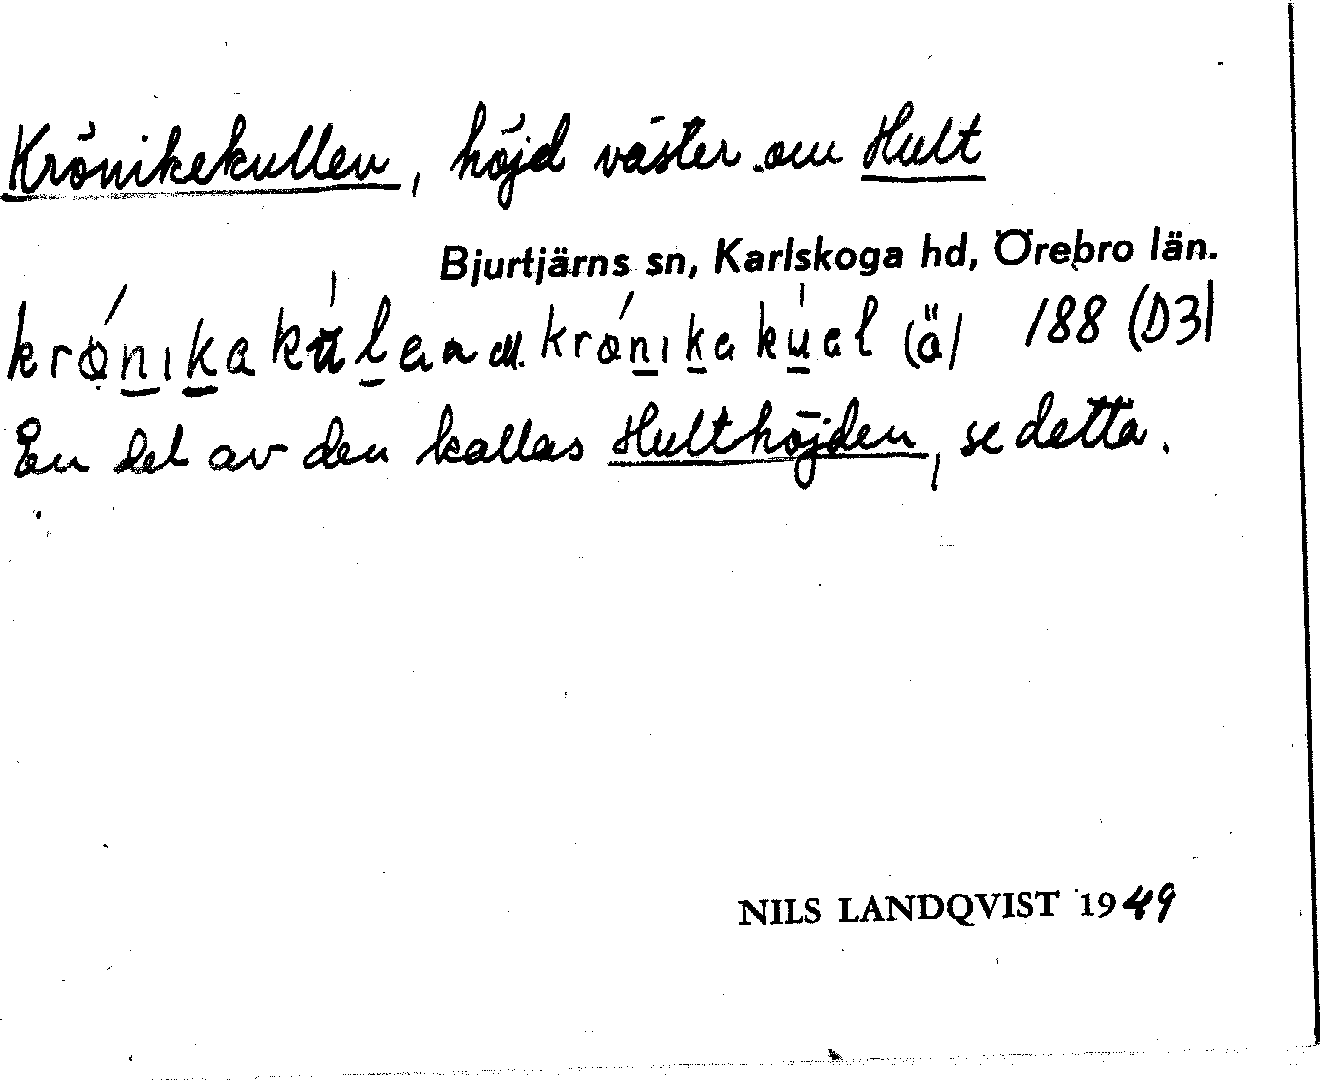 Krönikekullen, höjd väster om Hult
Bjurtjärns sn, Karlskoga hd, Örebro län.
(ä) 188 (D3)
En del av den kallas Hulthöjden, se detta.
NILS LANDQVIST 1949